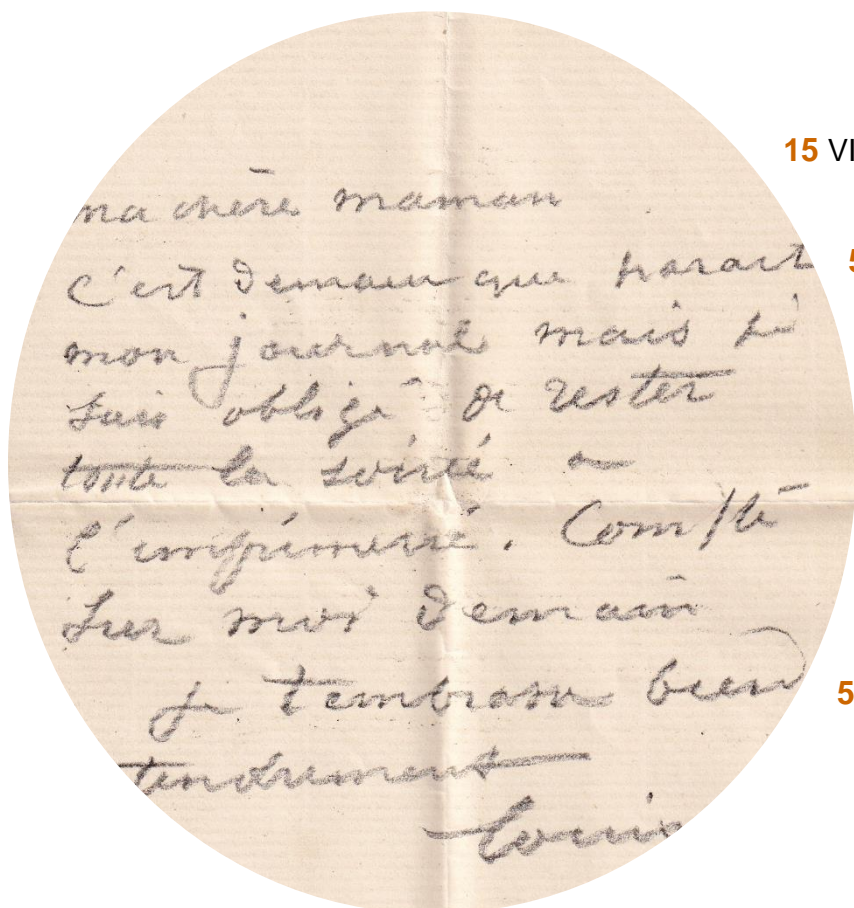 ma chère maman
c'est demain que parait
mon journal mais je
suis obligé de rester
toute la soirée a
l'imprimerie. Compte
sur moi demain
je t'embrasse bien
tendrement
Louis
15 VI
5
5